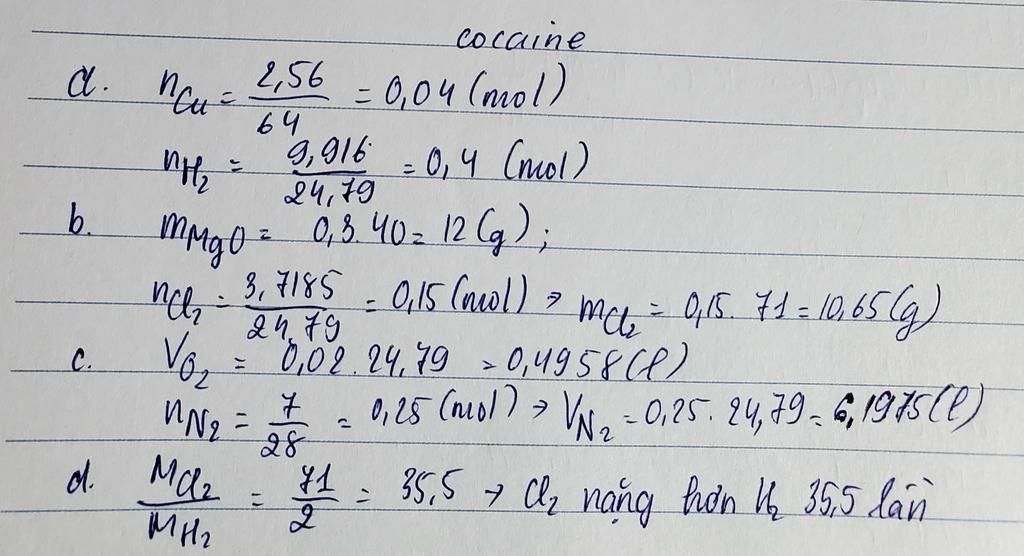 cocaine
a. nCu = 2,56/64 = 0,04 (mol)
nH2 = 9,916/24,79 = 0,4 (mol)
b. mMgO = 0,3.40 = 12 (g);
nCl2 = 3,7185/24,79 = 0,15 (mol) → mCl2 = 0,15.71 = 10,65 (g)
c. VO2 = 0,02.24,79 = 0,4958 (l)
nN2 = 7/28 = 0,25 (mol) → VN2 = 0,25.24,79 = 6,1975 (l)
d. MCl2/MH2 = 71/2 = 35,5 → Cl2 nặng hơn H2 35,5 lần